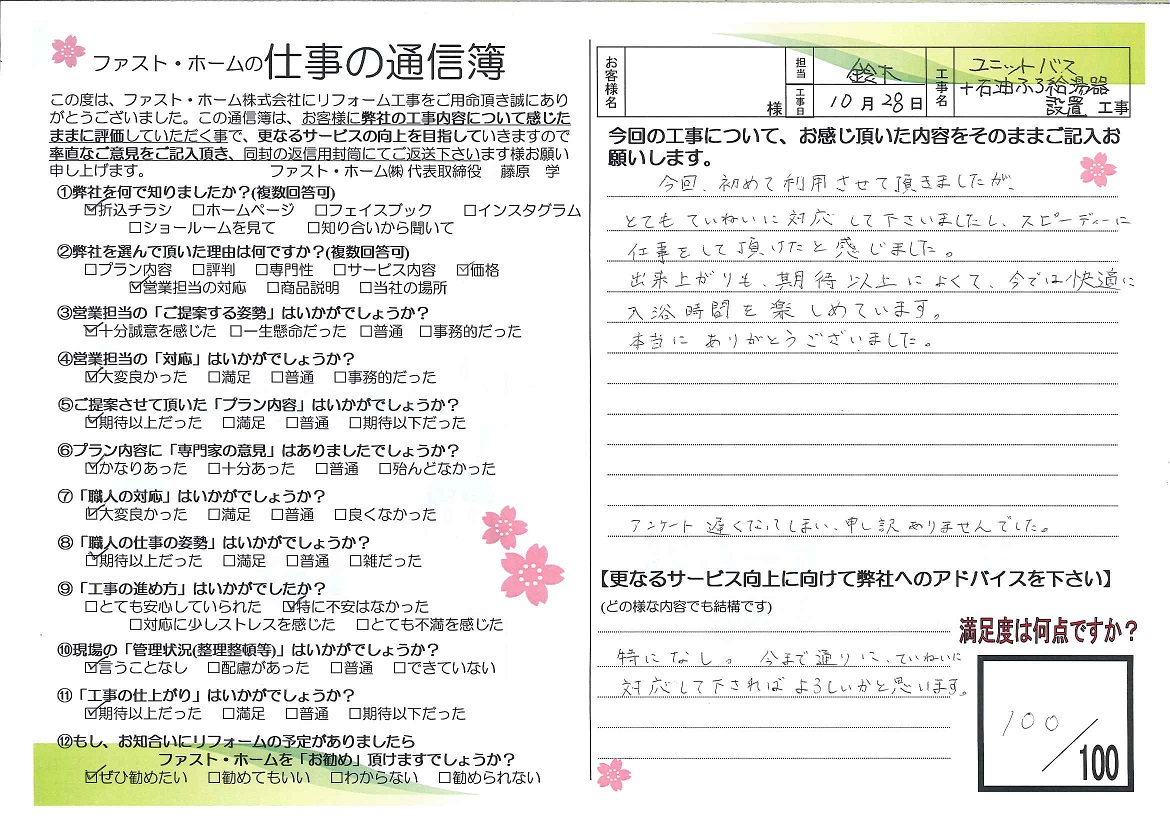 ファスト・ホームの仕事の通信簿
この度は、ファスト・ホーム株式会社にリフォーム工事をご用命頂き誠にあり
がとうございました。この通信簿は、お客様に弊社の工事内容について感じた
ままに評価していただく事で、更なるサービスの向上を目指していきますので
率直なご意見をご記入頂き、同封の返信用封筒にてご返送下さいます様お願い
申し上げます。 ファスト・ホーム㈱ 代表取締役 藤原 学
①弊社を何で知りましたか？(複数回答可)
☑折込チラシ □ホームページ □フェイスブック □インスタグラム
□ショールームを見て □知り合いから聞いて
②弊社を選んで頂いた理由は何ですか？(複数回答可)
□プラン内容 □評判 □専門性 □サービス内容 ☑価格
☑営業担当の対応 □商品説明 □当社の場所
③営業担当の「ご提案する姿勢」はいかがでしょうか？
☑十分誠意を感じた □一生懸命だった □普通 □事務的だった
④営業担当の「対応」はいかがでしょうか？
☑大変良かった □満足 □普通 □事務的だった
⑤ご提案させて頂いた「プラン内容」はいかがでしょうか？
☑期待以上だった □満足 □普通 □期待以下だった
⑥プラン内容に「専門家の意見」はありましたでしょうか？
☑かなりあった □十分あった □普通 □殆んどなかった
⑦「職人の対応」はいかがでしょうか？
☑大変良かった □満足 □普通 □良くなかった
⑧「職人の仕事の姿勢」はいかがでしょうか？
☑期待以上だった □満足 □普通 □雑だった
⑨「工事の進め方」はいかがでしたか？
□とても安心していられた ☑特に不安はなかった
□対応に少しストレスを感じた □とても不満を感じた
⑩現場の「管理状況(整理整頓等)」はいかがでしょうか？
☑言うことなし □配慮があった □普通 □できていない
⑪「工事の仕上がり」はいかがでしょうか？
☑期待以上だった □満足 □普通 □期待以下だった
⑫もし、お知合いにリフォームの予定がありましたら
ファスト・ホームを「お勧め」頂けますでしょうか？
☑ぜひ勧めたい □勧めてもいい □わからない □勧められない
お客様名 様 担当 鈴木 工事日 10月28日 工事名 ユニットバス
+石油ふろ給湯器
設置 工事
今回の工事について、お感じ頂いた内容をそのままご記入お
願いします。
今回、初めて利用させて頂きましたが、
とてもていねいに対応して下さいましたし、スピーディーに
仕事をして頂けたと感じました。
出来上がりも、期待以上によくて、今では快適に
入浴時間を楽しめています。
本当にありがとうございました。
アンケート遅くなってしまい、申し訳ありませんでした。
【更なるサービス向上に向けて弊社へのアドバイスを下さい】
(どの様な内容でも結構です)
特になし。今まで通りに、ていねいに
対応して下さればよろしいかと思います。
満足度は何点ですか？
100／100